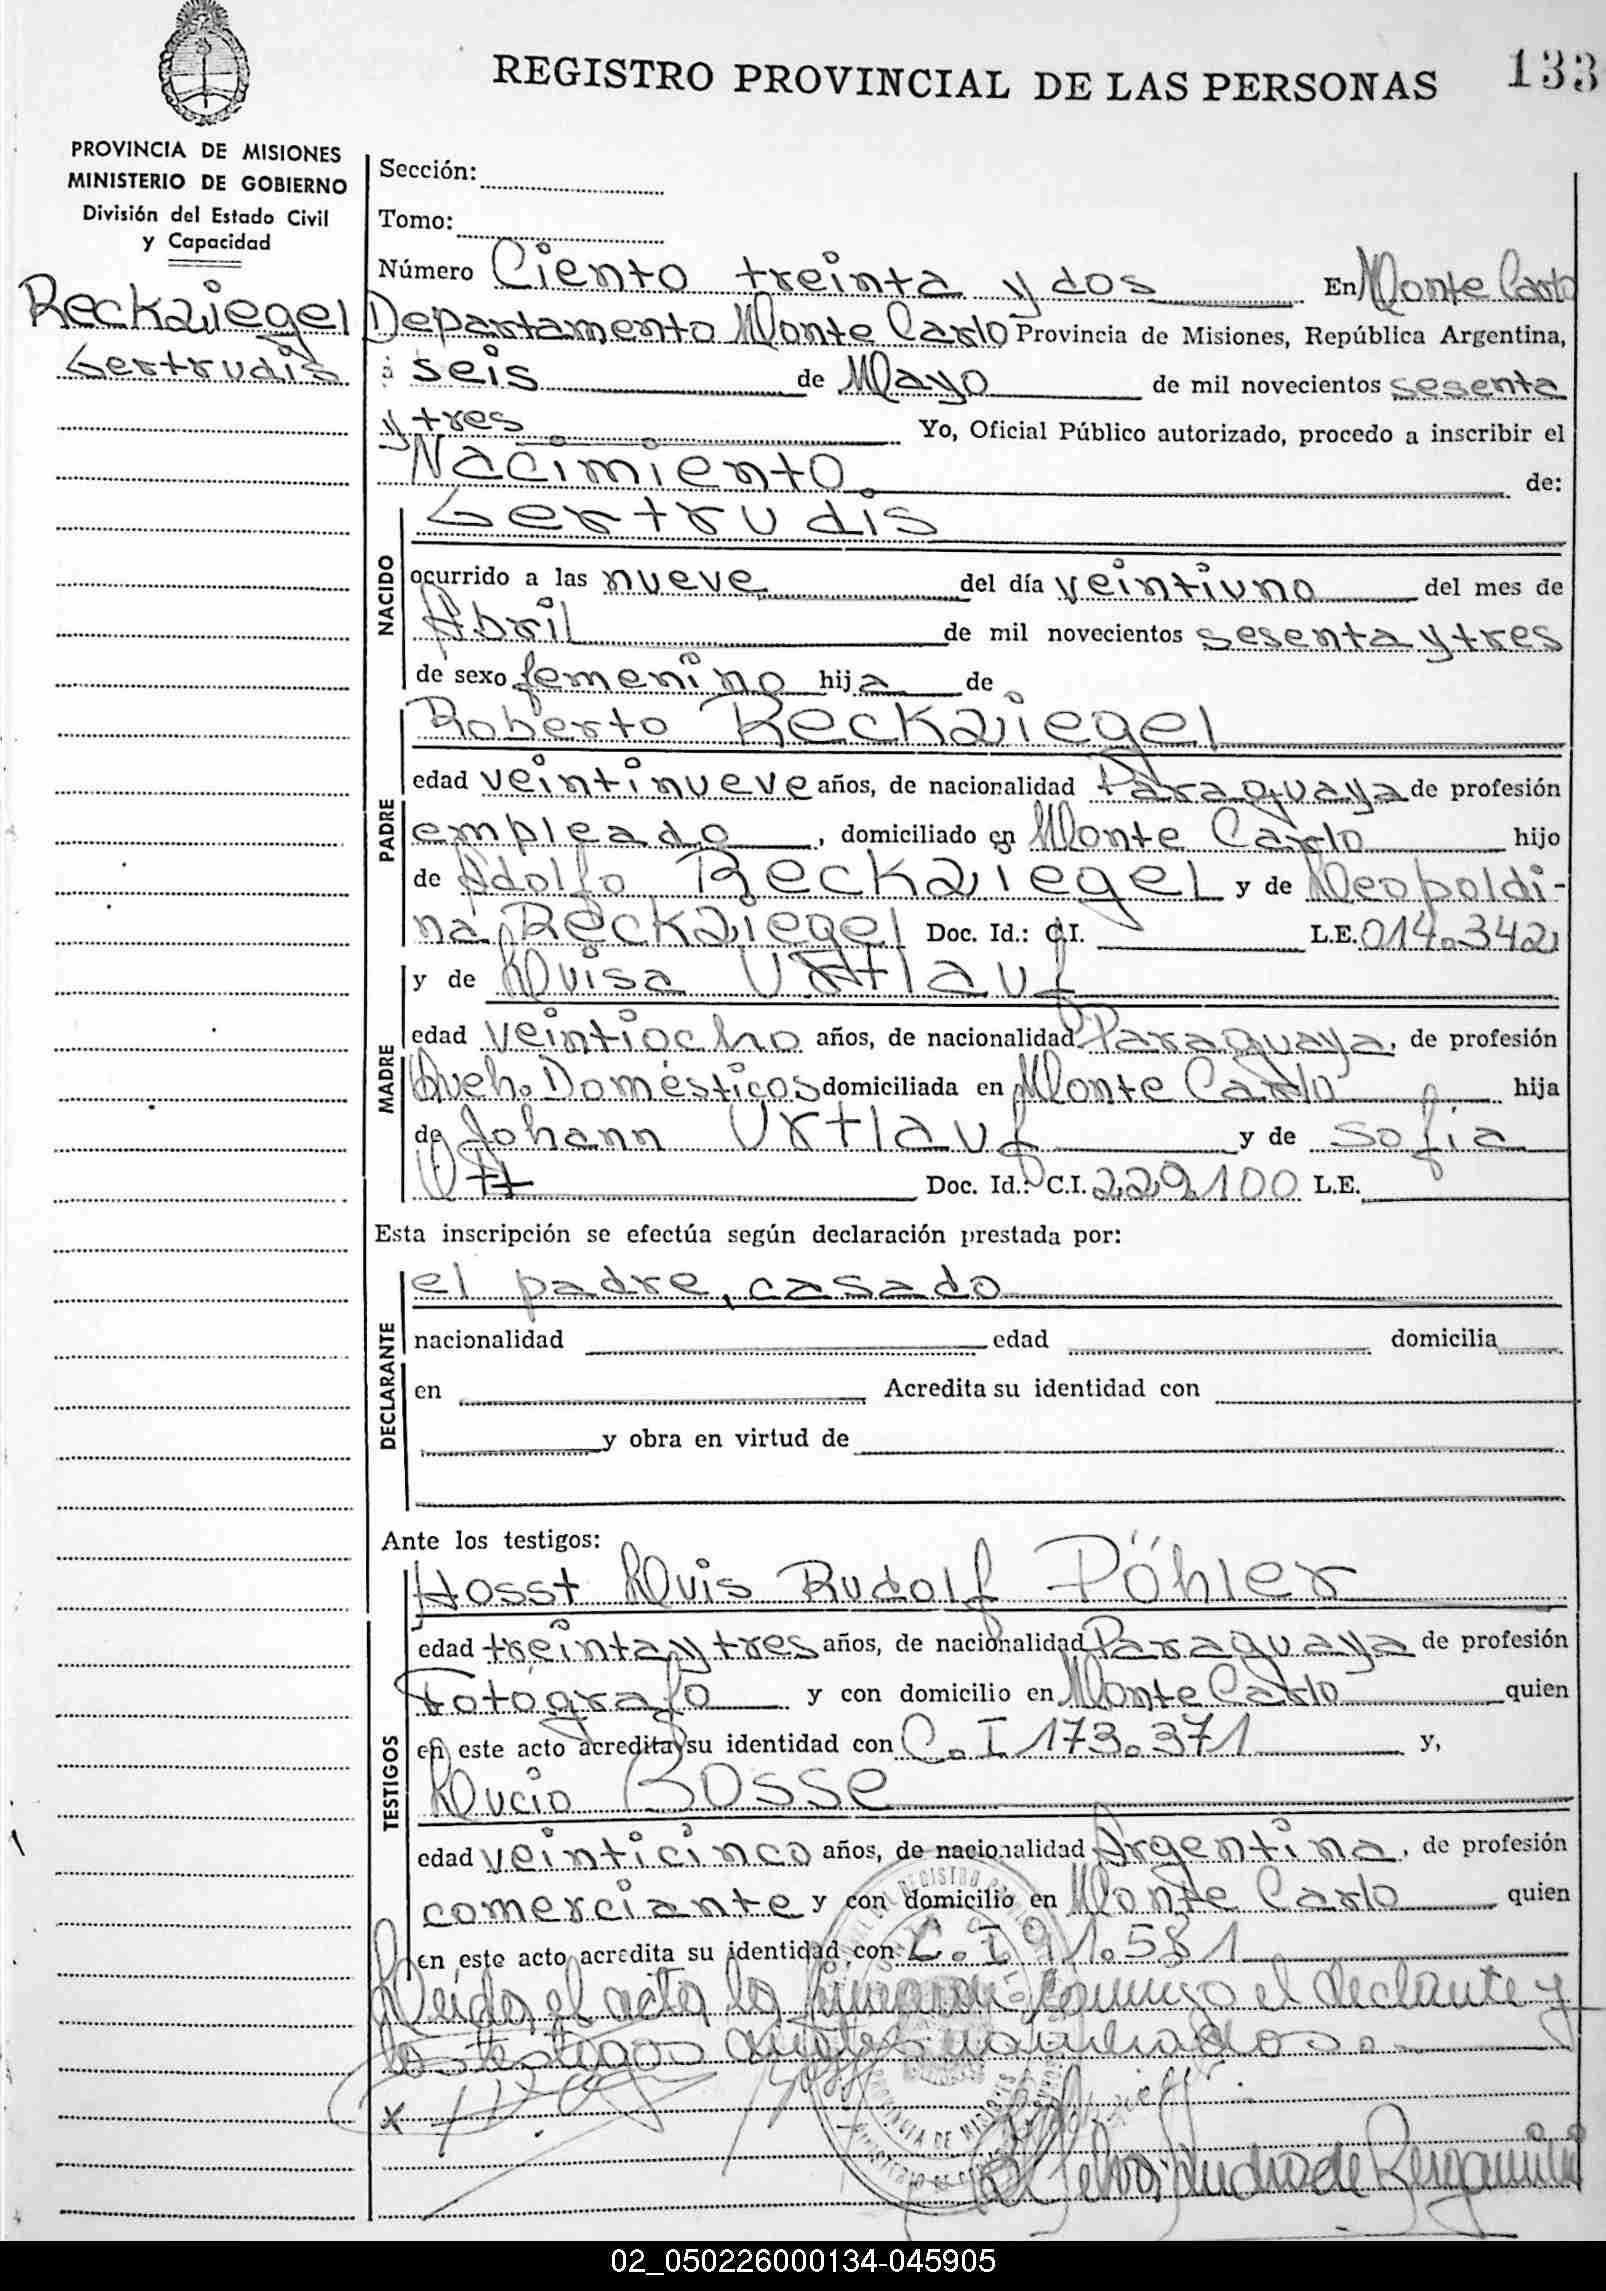 REGISTRO PROVINCIAL DE LAS PERSONAS 133
PROVINCIA DE MISIONES
MINISTERIO DE GOBIERNO
División del Estado Civil
y Capacidad
Reckziegel
Gertrudis
Sección:
Tomo:
Número Ciento treinta y dos En Monte Carlo
Departamento Monte Carlo Provincia de Misiones, República Argentina,
a seis de Mayo de mil novecientos sesenta
y tres Yo, Oficial Público autorizado, procedo a inscribir el
Nacimiento de:
NACIDO
Gertrudis
ocurrido a las nueve del día veintiuno del mes de
Abril de mil novecientos sesenta y tres
de sexo femenino hija de
PADRE
Roberto Reckziegel
edad veintinueve años, de nacionalidad Paraguaya de profesión
empleado, domiciliado en Monte Carlo hijo
de Adolfo Reckziegel y de Leopoldi-
na Reckziegel Doc. Id.: C.I. L.E. 014.342
MADRE
y de Luisa Urtlauf
edad veintiocho años, de nacionalidad Paraguaya, de profesión
Queh. Domésticos domiciliada en Monte Carlo hija
de Johann Urtlauf y de Sofia
Ott Doc. Id.: C.I. 229.100 L.E.
Esta inscripción se efectúa según declaración prestada por:
DECLARANTE
el padre, casado
nacionalidad edad domicilia
en Acredita su identidad con
y obra en virtud de
Ante los testigos:
TESTIGOS
Horst Luis Rudolf Pöhler
edad treinta y tres años, de nacionalidad Paraguaya de profesión
Fotógrafo y con domicilio en Monte Carlo quien
en este acto acredita su identidad con C.I 173.371 y,
Lucio Bosse
edad veinticinco años, de nacionalidad Argentina, de profesión
comerciante y con domicilio en Monte Carlo quien
en este acto acredita su identidad con C.I 91.581
Leida el acta la firmaron conmigo el declante y
los testigos antes nombrados.
x
PROVINCIA DE MISIONES
02_050226000134-045905